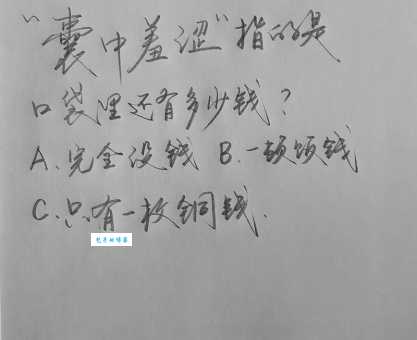 “囊中羞涩”指的是
口袋里还有多少钱?
A.完全没钱 B.一顿饭钱
C.只有一枚铜钱.